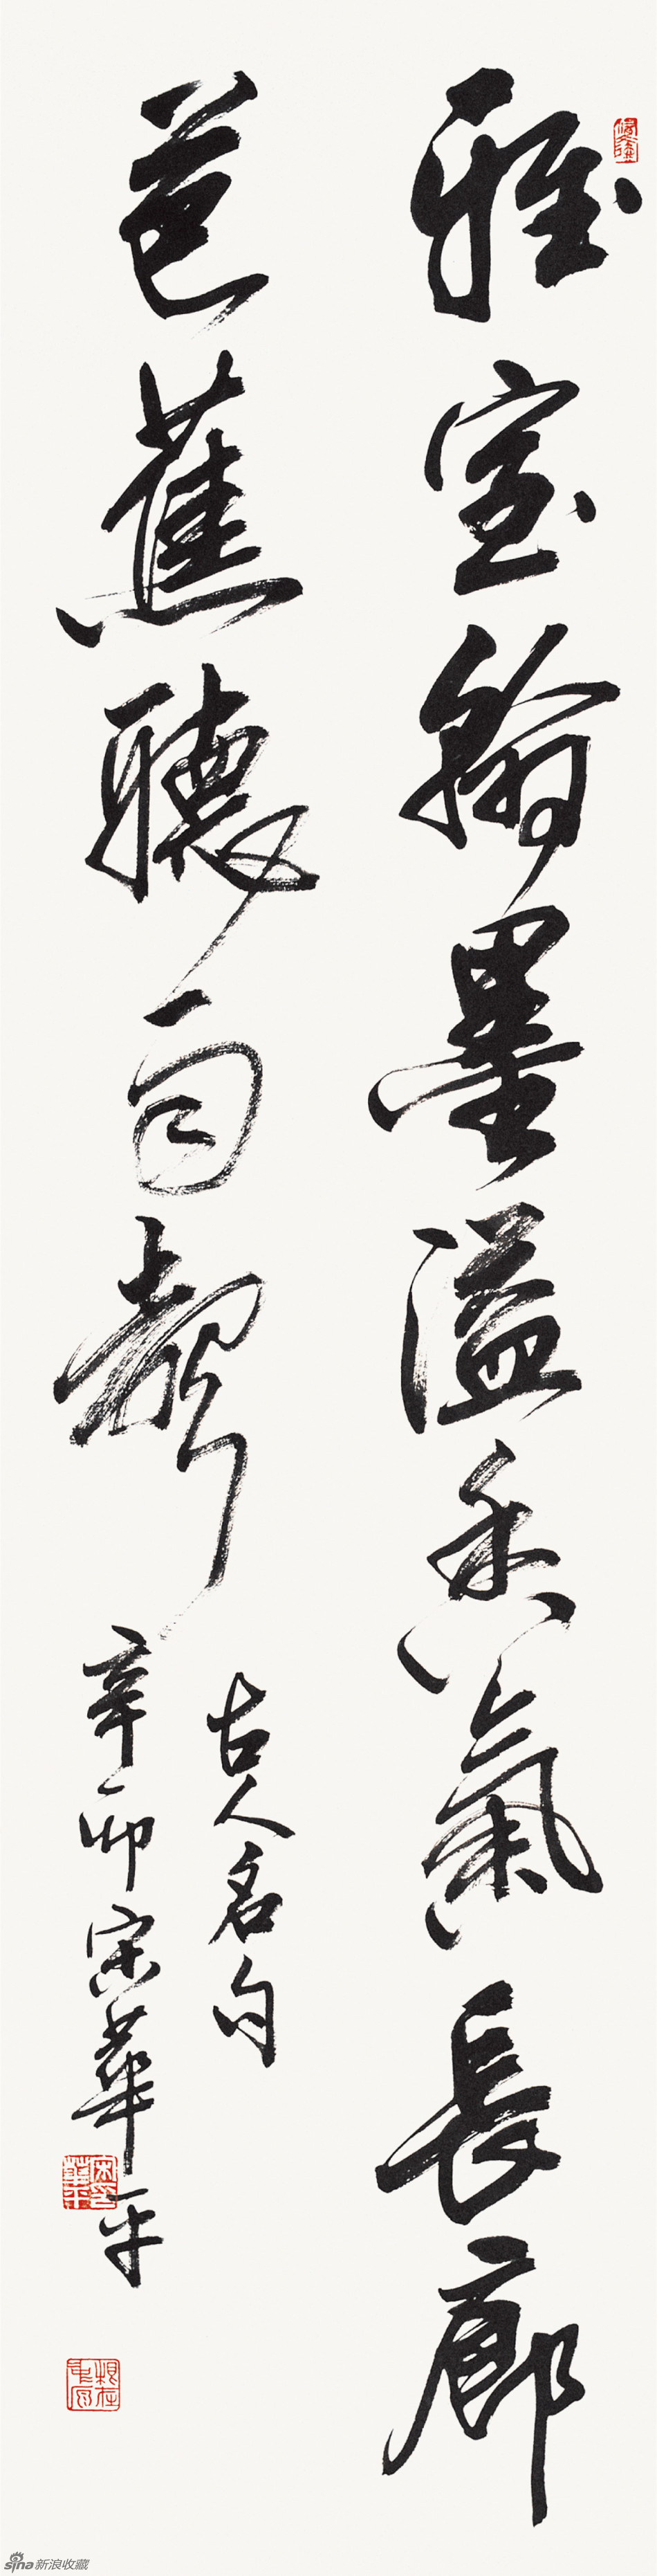 雅室翰墨溢香氣長廊
芭蕉聽雨聲
古人名句
辛卯宋華平
sina新浪收藏